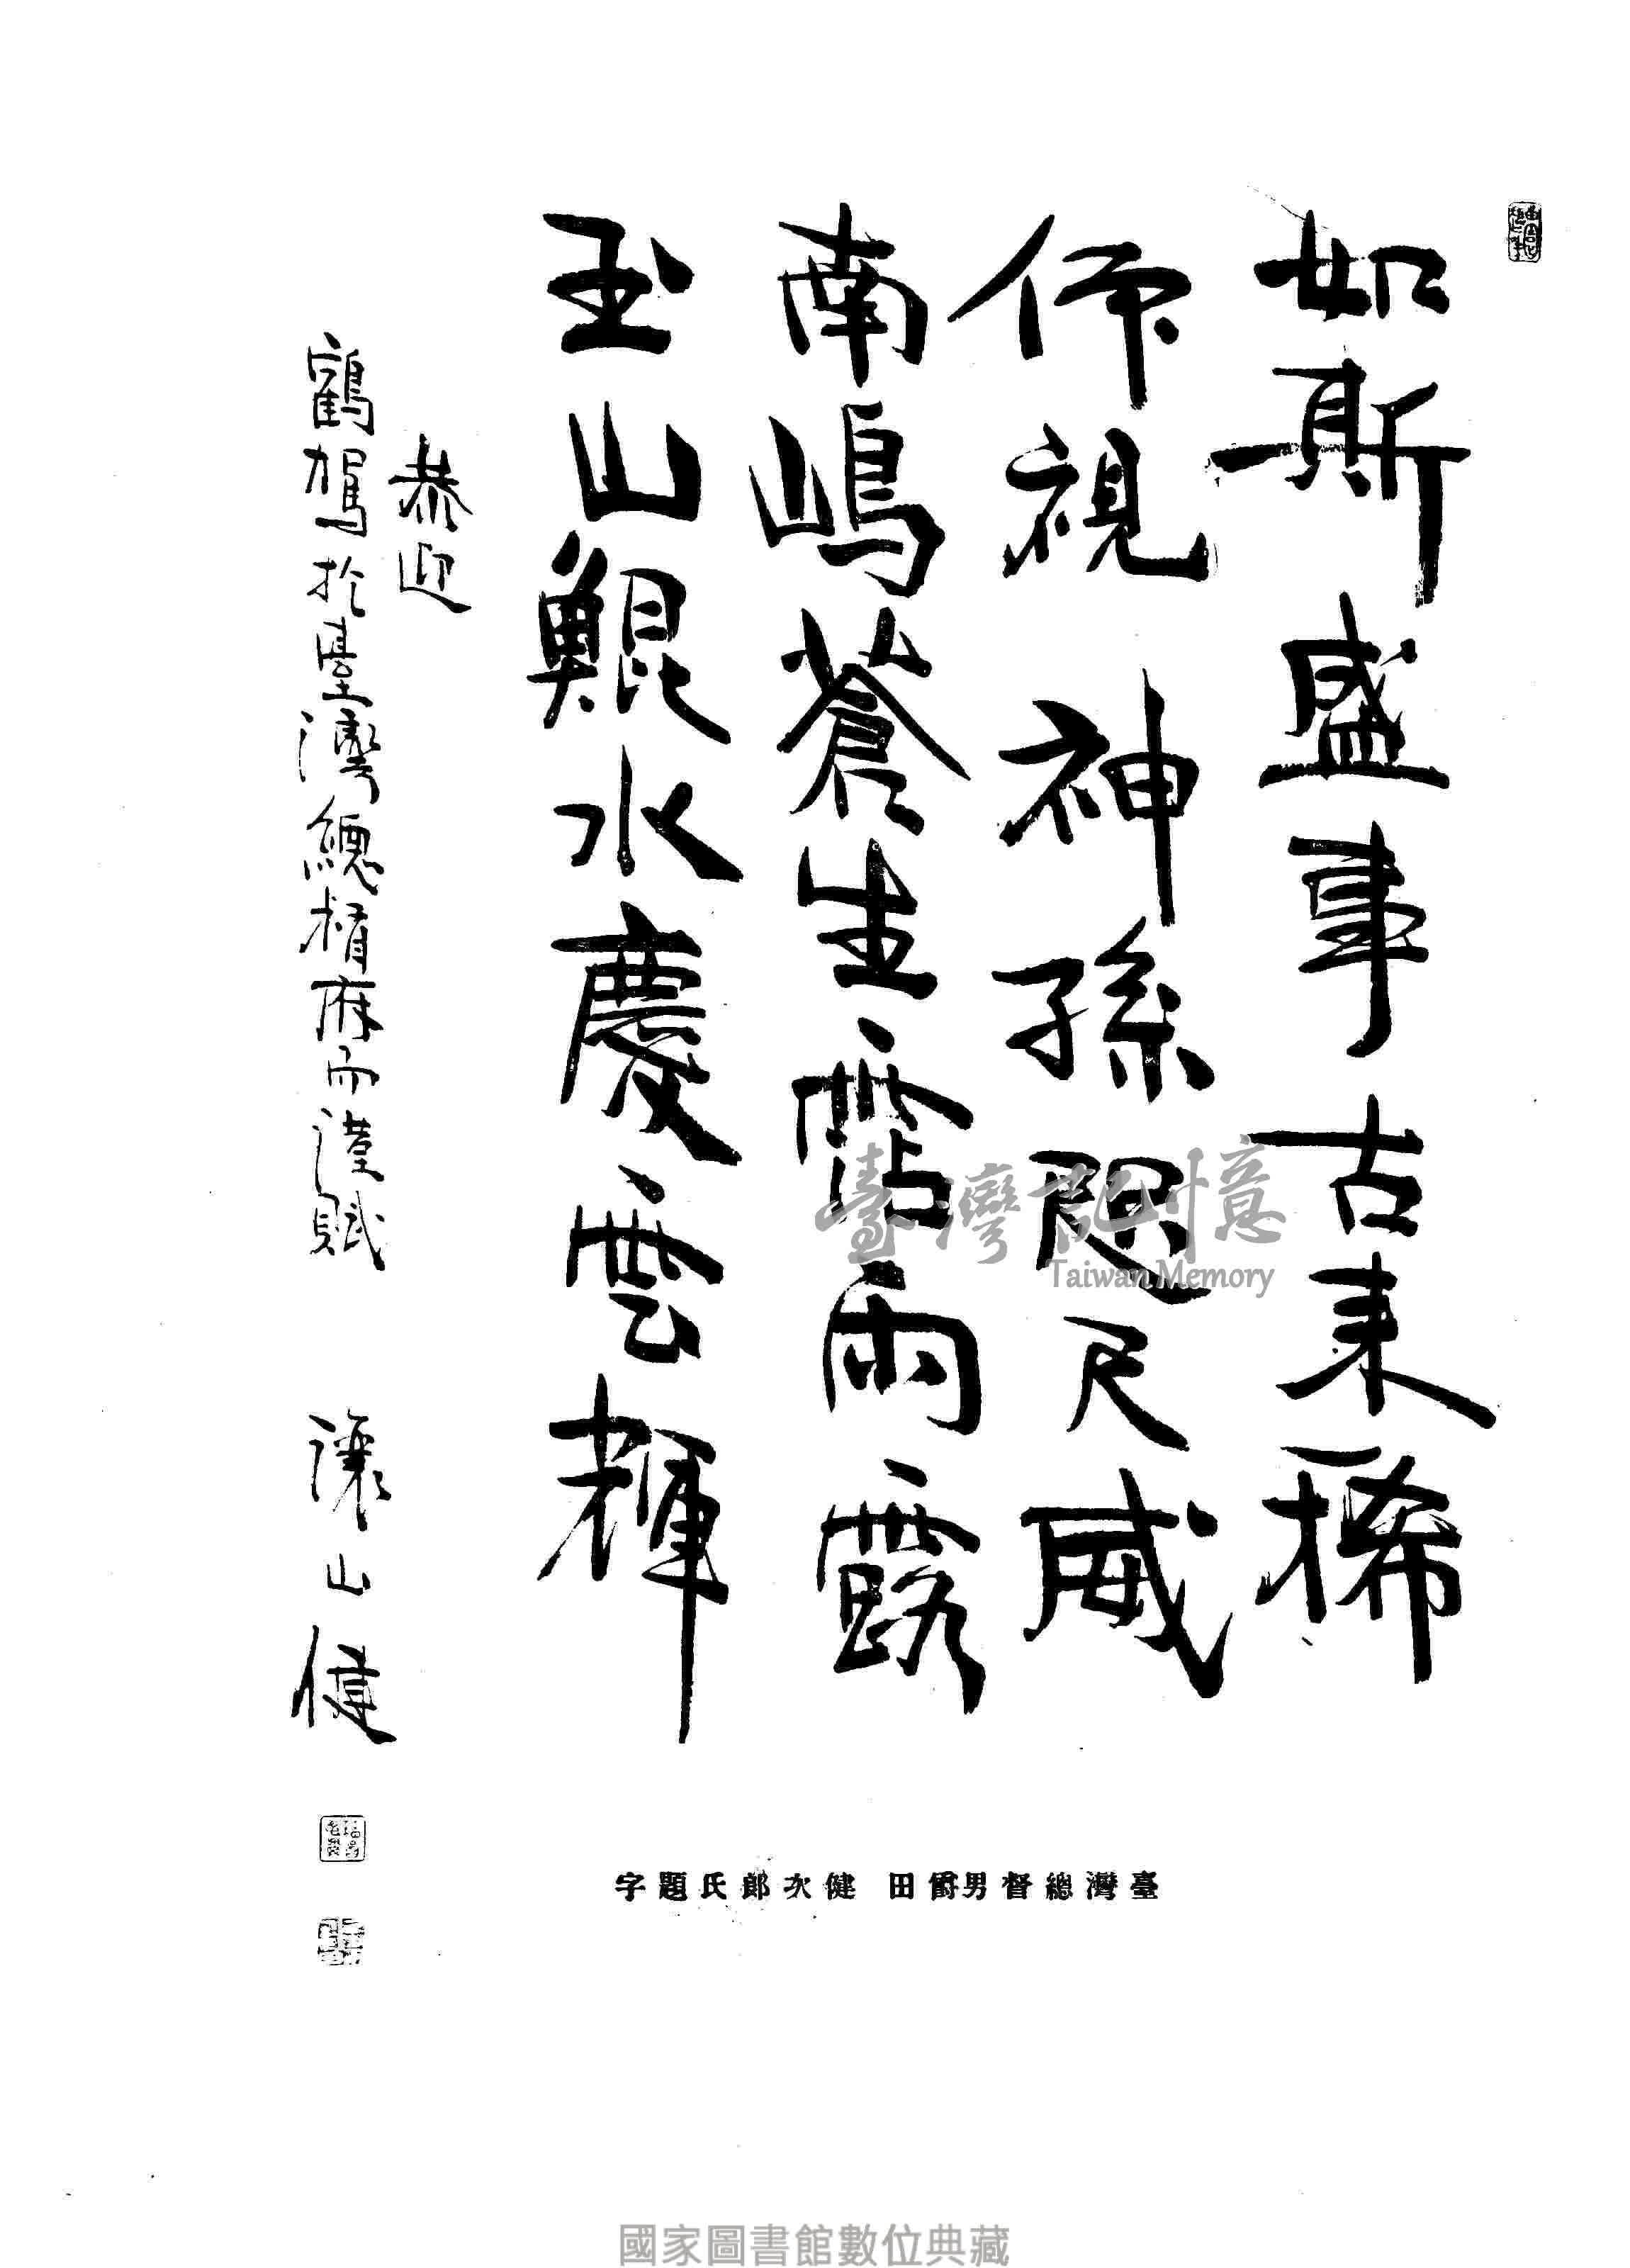 如斯盛事古来稀
仰視神孫咫尺威
南嶋蒼生霑雨露
玉山鯤水慶雲輝
恭迎
鶴駕於臺灣總督府而謹賦
讓山健
臺灣總督男爵田健次郎氏題字
臺灣記憶
Taiwan Memory
國家圖書館數位典藏